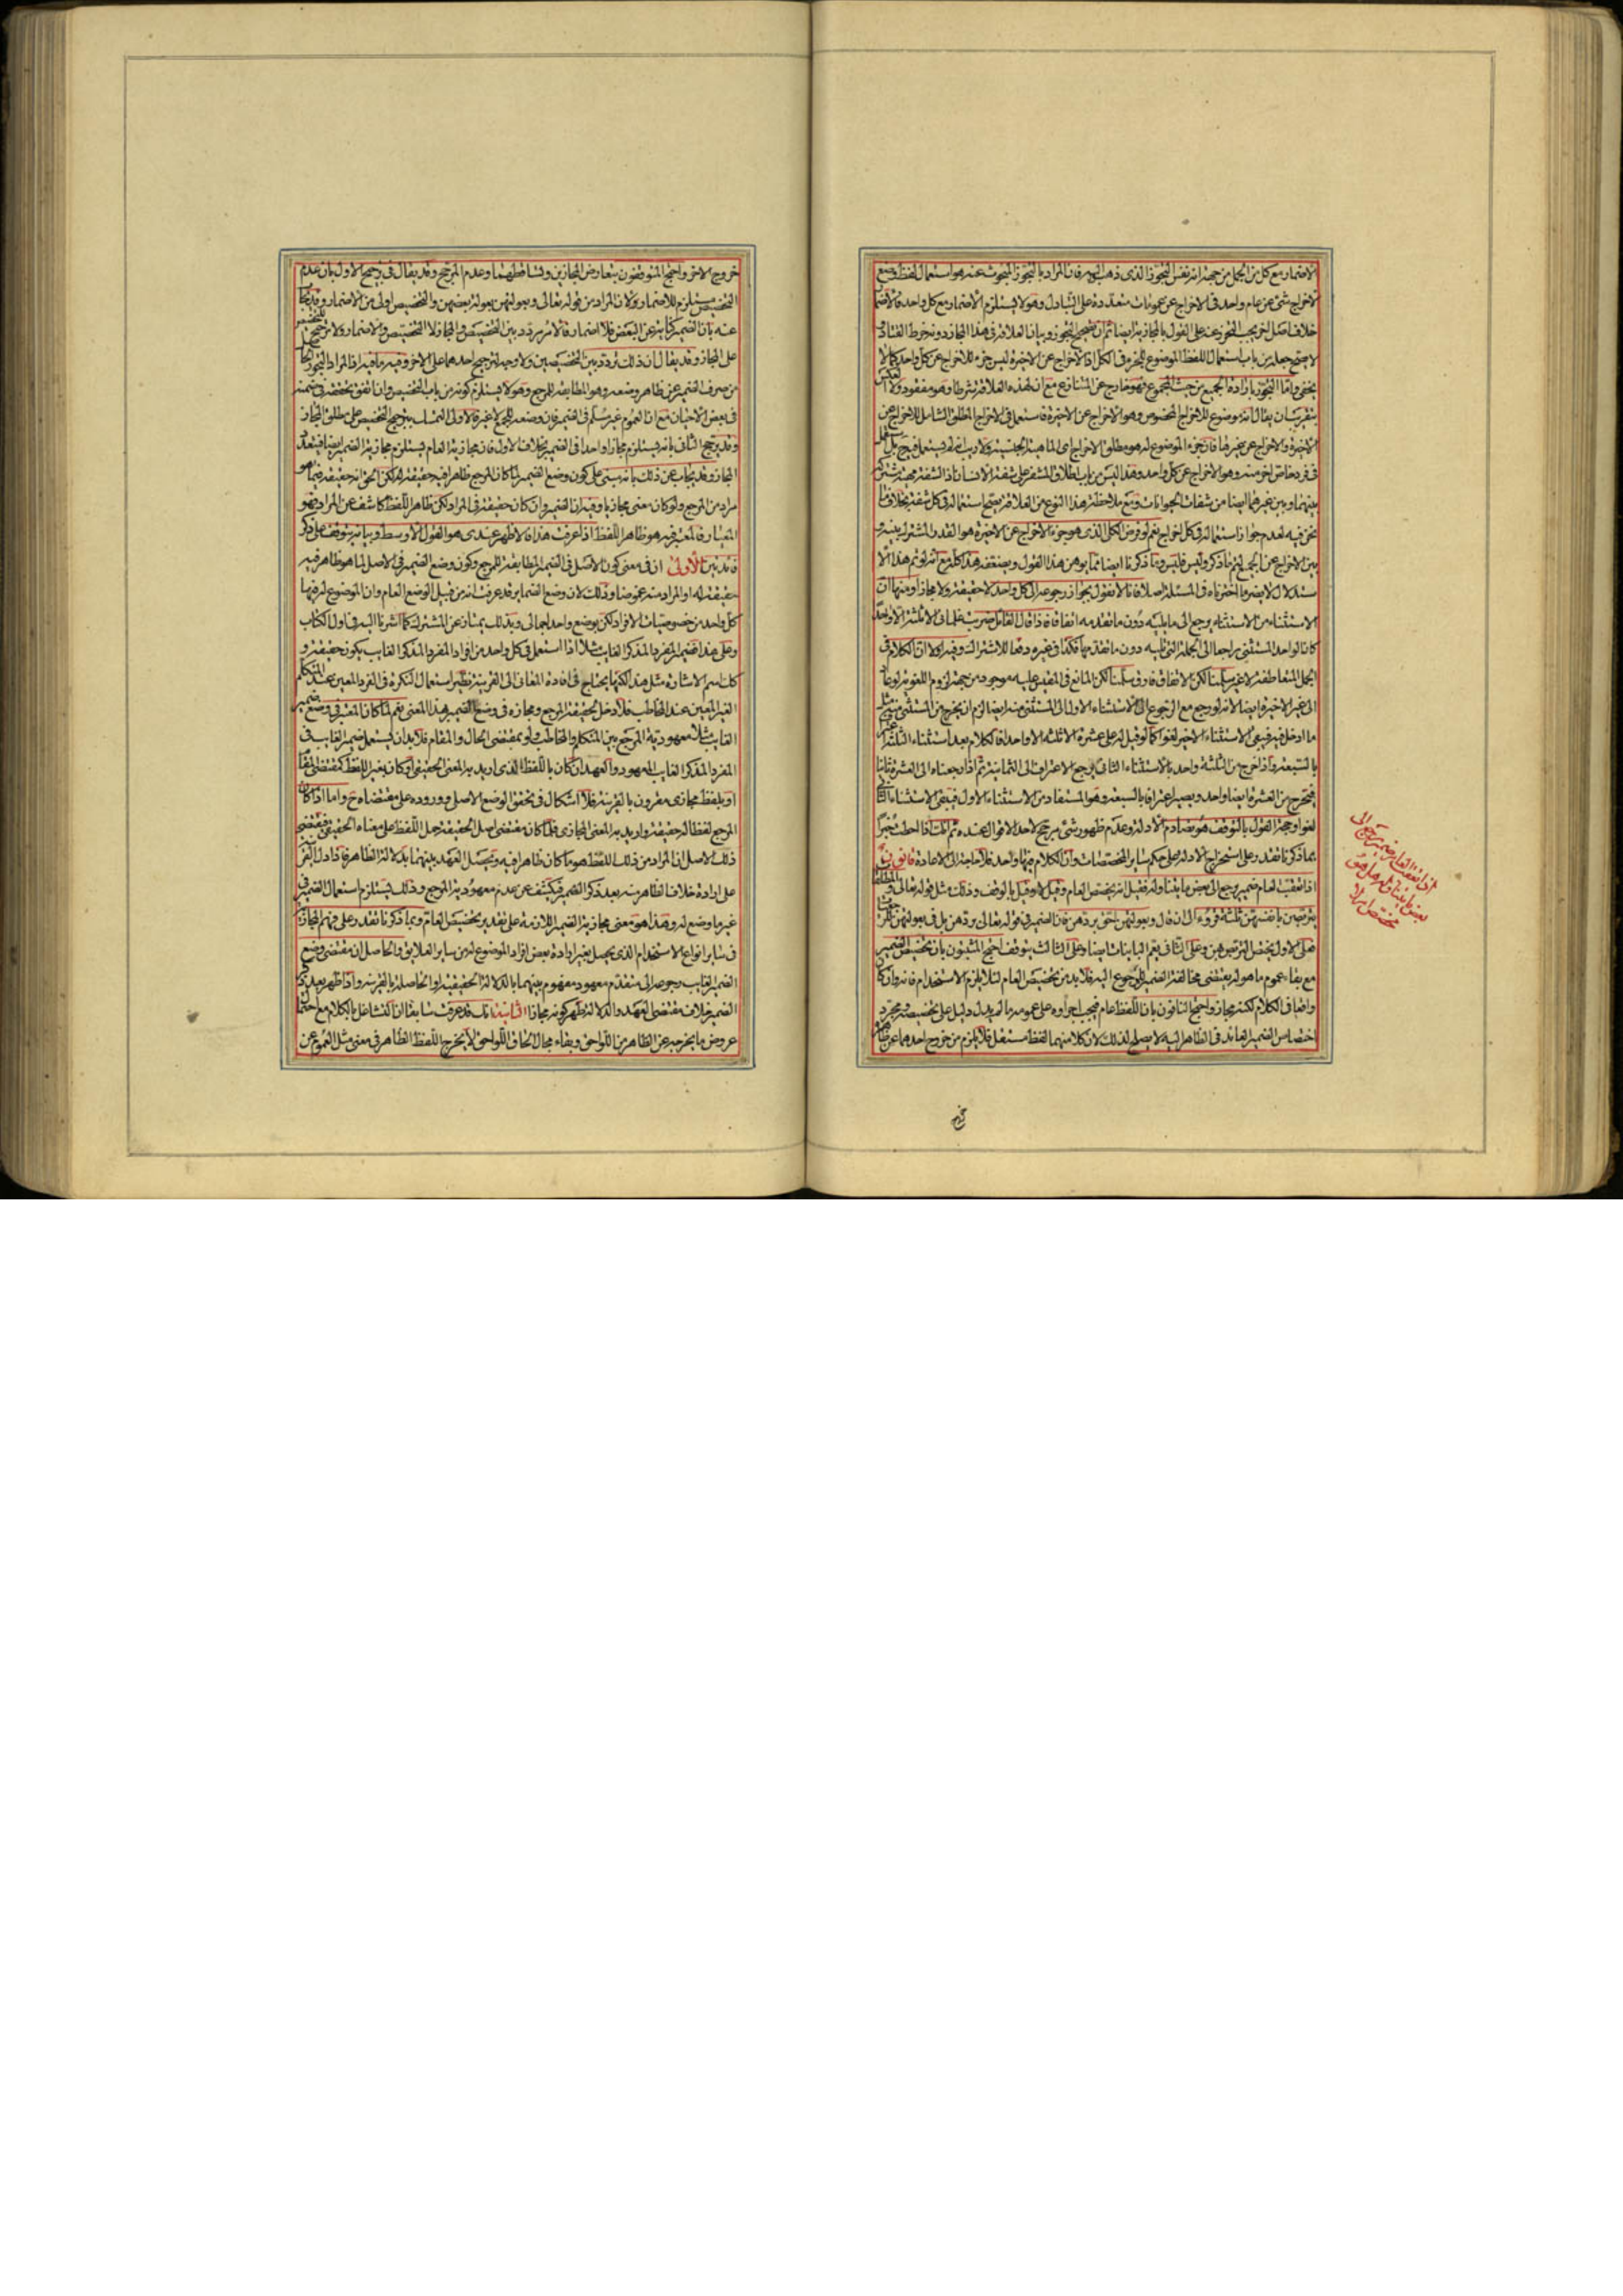 الاضمار مع كل من الجمل من جهة انه نفس التجوز الذى ذهب اليه فان المراد بالتجوز المبحوث عنه هو استعمال لفظ وضع
لاخراج شئ عن عام واحد فى الاخراج عن عمومات متعددة على التبادل وهو لا يستلزم الاضمار مع كل واحد فالاضمار
خلاف اصل اخر يجب التحرز عنه على القول بالمجازية ايضا ثم ان تصحيح التجوز وبيان العلاقة فى هذا المجاز دونه خرط القتاد و
لا يصح جعله من باب استعمال اللفظ الموضوع للجزء فى الكل اذ الاخراج عن الاخيرة ليس جزء للاخراج عن كل واحد كما لا
يخفى واما التجوز بارادة الجميع من حيث المجموع فهو خارج عن المتنازع مع ان لهذه العلاقة شرطا وهو مفقود ولا
الاخيرة والاخراج عن غيرها فان جزء الموضوع له هو مطلق الاخراج
فى فرد خاص اخر منه وهو الاخراج عن كل واحد وهذا ليس من باب اطلاق المشفر على شفة الانسان
بينهما وبين غيرهما ايضا من شفات الحيوانات ومع ملاحظة هذا النوع من العلاقة يصح استعماله فى كل شفة بخلاف ما
نحن فيه لعدم جواز استعماله فى كل اخراج نعم لو فرض الكل الذى هو جزء الاخراج عن الاخيرة هو القدر المشترك بينه و
بين الاخراج عن الجميع لتم ما ذكره وليس فليس وما ذكرنا ايضا مما يوهن هذا القول ويضعفه هذا كله مع انه لو تم هذا الا
ستدلال لا يضر ما اخترناه فى المسئلة اصلا فانا لا نقول بجواز رجوعه الى كل واحد لا حقيقة ولا مجازا ومنها ان
الاستثناء من الاستثناء يرجع الى ما يليه دون ما تقدمه اتفاقا فاذا قال القائل ضربت غلمانى الا ثلثة الا واحدا
كان الواحد المستثنى راجعا الى الجملة التى تليه دون ما تقدمها فكذا فى غيره دفعا للاشتراك وفيه اولا ان الكلام فى
الجمل المتعاطفة لا غير سلمنا لكن الاتفاق فارق سلمنا لكن المانع فى المقيس عليه موجود من جهة لزوم اللغو لو رجع
الى غير الاخيرة ايضا لانه لو رجع مع الرجوع الى الاستثناء الاول الى المستثنى منه ايضا لزم ان يخرج من المستثنى منه مثل
ما ادخل فيه فيبقى الاستثناء الاخير لغوا كما لو قيل له على عشرة الا ثلثة الا واحدا فالكلام بعد استثناء الثلثة
بالسبعة واذا خرج من الثلثة واحد بالاستثناء الثانى يرجع الاعتراف الى الثمانية ثم اذا ارجعناه الى العشرة ثانيا
فيخرج من العشرة ايضا واحد ويصير اعترافا بالسبعة وهو المستفاد من الاستثناء الاول فيبقى الاستثناء الثانى
لغوا وحجة القول بالتوقف هو تصادم الادلة وعدم ظهور شئ مرجح لاحد الاقوال عنده ثم انك اذا احطت خبرا
بما ذكرنا تقدر على استخراج الادلة على حكم ساير المخصصات وان الكلام فيها واحد فلا حاجة الى الاعادة قانون
اذا تعقب العام ضمير يرجع الى بعض ما يتناوله فقيل انه يخصص العام وقيل لا وقيل بالوقف وذلك مثل قوله تعالى والمطلقات
يتربصن بانفسهن ثلثة قروء الى ان قال وبعولتهن احق بردهن فان الضمير فى قوله تعالى بردهن بل فى بعولتهن للرجعيات
فعلى الاول يختص التربص بهن وعلى الثانى يعم البائنات ايضا وعلى الثالث يتوقف احتج المثبتون بان تخصيص الضمير
مع بقاء عموم ما هو له يقتضى مخالفة الضمير للمرجوع اليه فلا بد من تخصيص العام لئلا يلزم الاستخدام فانه وان كان
واقعا فى الكلام لكنه مجاز واحتج النافون بان اللفظ عام فيجب اجراؤه على عمومه ما لم يدل دليل على تخصيصه ومجرد
اختصاص الضمير العائد فى الظاهر اليه لا يصلح لذلك لان كلا منهما لفظ مستقل فلا يلزم من خروج احدهما عن ظاهره
اذا تعقب العام ضمير يرجع الى
بعض ما يتناوله هل هو
مخصص ام لا
خروج الاخر واحتج المتوقفون بتعارض المجازين وتساقطهما وعدم المرجح وقد يقال فى ترجيح الاول بان عدم
التخصيص مستلزم للاضمار لان المراد من قوله تعالى وبعولتهن بعولة بعضهن والتخصيص اولى من الاضمار وقد يجاب
عنه بان الضمير كناية عن البعض فلا اضمار فالامر يتردد بين التخصيص والمجاز لا التخصيص والاضمار ولا ترجيح للتخصيص
على المجاز وقد يقال ان ذلك تردد بين التخصيصين ولا وجه لترجيح احدهما على الاخر وفيه ما فيه اذ المراد التجوز الحاصل
من صرف الضمير عن ظاهر وضعه وهو المطابقة للمرجع وهو لا يستلزم كونه من باب التخصيص وان اتفق تحققه فى ضمنه
فى بعض الاحيان مع ان العموم غير مسلم فى الضمير فان وضعه للجمع لا غير فالاولى التمسك بترجيح التخصيص على مطلق المجاز
وقد يرجح الثانى بانه يستلزم مجازا واحدا فى الضمير بخلاف الاول فان مجازية العام يستلزم مجازية الضمير ايضا فيتعدد
المجاز وقد يجاب عن ذلك بانه مبنى على كون وضع الضمير لما كان المرجع ظاهرا فيه حقيقة له لكن الحق انه حقيقة فيما هو
مراد من المرجع ولو كان معنى مجازيا وفيه ان الضمير وان كان حقيقة فى المراد لكن ظاهر اللفظ كاشف عن المراد وهو
المعيار فالمعتبر فيه هو ظاهر اللفظ اذا عرفت هذا فالاظهر عندى هو القول الاوسط وبيانه يتوقف على ذكر
فائدتين الاولى ان فى معنى كون الاصل فى الضمير المطابقة للمرجع وكون وضع الضمير فى الاصل لما هو ظاهر فيه
حقيقة له او المراد منه غموضا وذلك لان وضع الضماير قد عرفت انه من قبيل الوضع العام وان الموضوع له فيها
كل واحد من خصوصيات الافراد لكن بوضع واحد اجمالى وبذلك يمتاز عن المشترك كما اشرنا اليه فى اول الكتاب
وعلى هذا فضمير المفرد المذكر الغايب مثلا اذا استعمل فى كل واحد من افراد المفرد المذكر الغايب يكون حقيقة و
كذلك اسم الاشارة مثل هذا لكنها يحتاج فى افادة المعانى الى القرينة نظير استعمال النكرة فى الفرد المعين عند المتكلم
الغير المعين عند المخاطب فلا دخل لحقيقة المرجع ومجازه فى وضع الضمير بهذا المعنى نعم لما كان المعتبر فى وضع ضمير
الغايب مثلا معهودية المرجع بين المتكلم والمخاطب ولو بمقتضى الحال والمقام فلا بد ان يستعمل ضمير الغايب فى
المفرد المذكر الغايب المعهود والعهد ان كان باللفظ الذى اريد به المعنى الحقيقى او كان بغير اللفظ كمقتضى المقام
او بلفظ مجازى مقرون بالقرينة فلا اشكال فى تحقق الوضع الاصلى ووروده على مقتضاه ح واما اذا كان
المرجع لفظا له حقيقة واريد به المعنى المجازى فلما كان مقتضى اصل الحقيقة حمل اللفظ على معناه الحقيقى فمقتضى
ذلك الاصل ان المراد من ذلك اللفظ هو ما كان ظاهرا فيه ويحصل العهد بينهما بدلالة الظاهر فاذا دل القرينة
على ارادة خلاف الظاهر منه بعد ذكر الضمير فيكشف عن عدم معهودية المرجع وذلك يستلزم استعمال الضمير فى
غير ما وضع له وهذا هو معنى مجازية الضمير اللازمة على تقدير تخصيص العام وبما ذكرنا تقدر على فهم المجازية
فى ساير انواع الاستخدام الذى يحصل بغير ارادة بعض افراد الموضوع له من ساير العلايق والحاصل ان مقتضى وضع
الضمير الغايب رجوعه الى متقدم معهود مفهوم بينهما بالدلالة الحقيقية او الحاصلة بالقرينة واذا ظهر بعد ذكر
الضمير خلاف مقتضى العهد والدلالة ظهر كونه مجازا الثانية انك قد عرفت سابقا ان التشاغل بالكلام مع احتمال
عروض ما يخرجه عن الظاهر من اللواحق وبقاء مجال الحاق اللواحق لا يخرج اللفظ الظاهر فى معنى مثل العموم عن